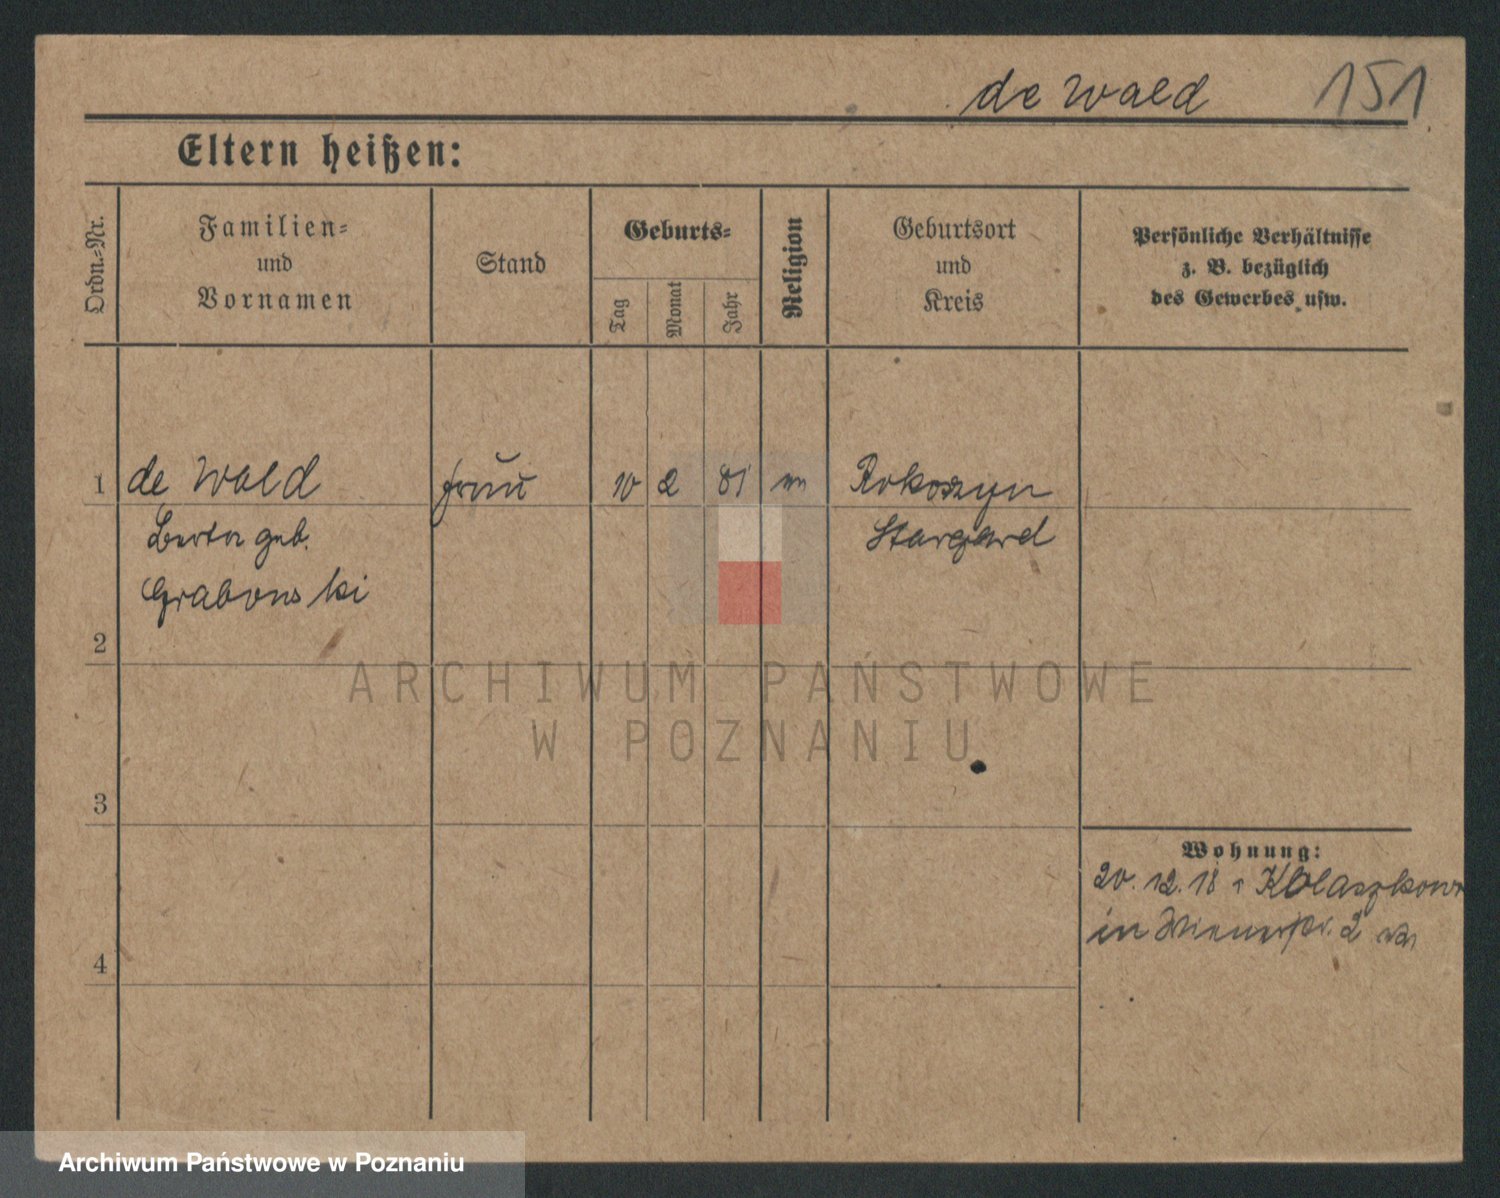 de Wald 151
Eltern heißen:
Ordn.-Nr.
Familien-
und
Vornamen
Stand
Geburts-
Tag
Monat
Jahr
Religion
Geburtsort
und
Kreis
Persönliche Verhältnisse
z. B. bezüglich
des Gewerbes usw.
1 de Wald Frau 10 2 81 Rokoszyn
Berta geb. Stargard
Grabowski
2
ARCHIWUM PAŃSTWOWE
W POZNANIU
3
Wohnung:
20. 12. 18 Kolaszkow
in Wienerstr. 2
4
Archiwum Państwowe w Poznaniu